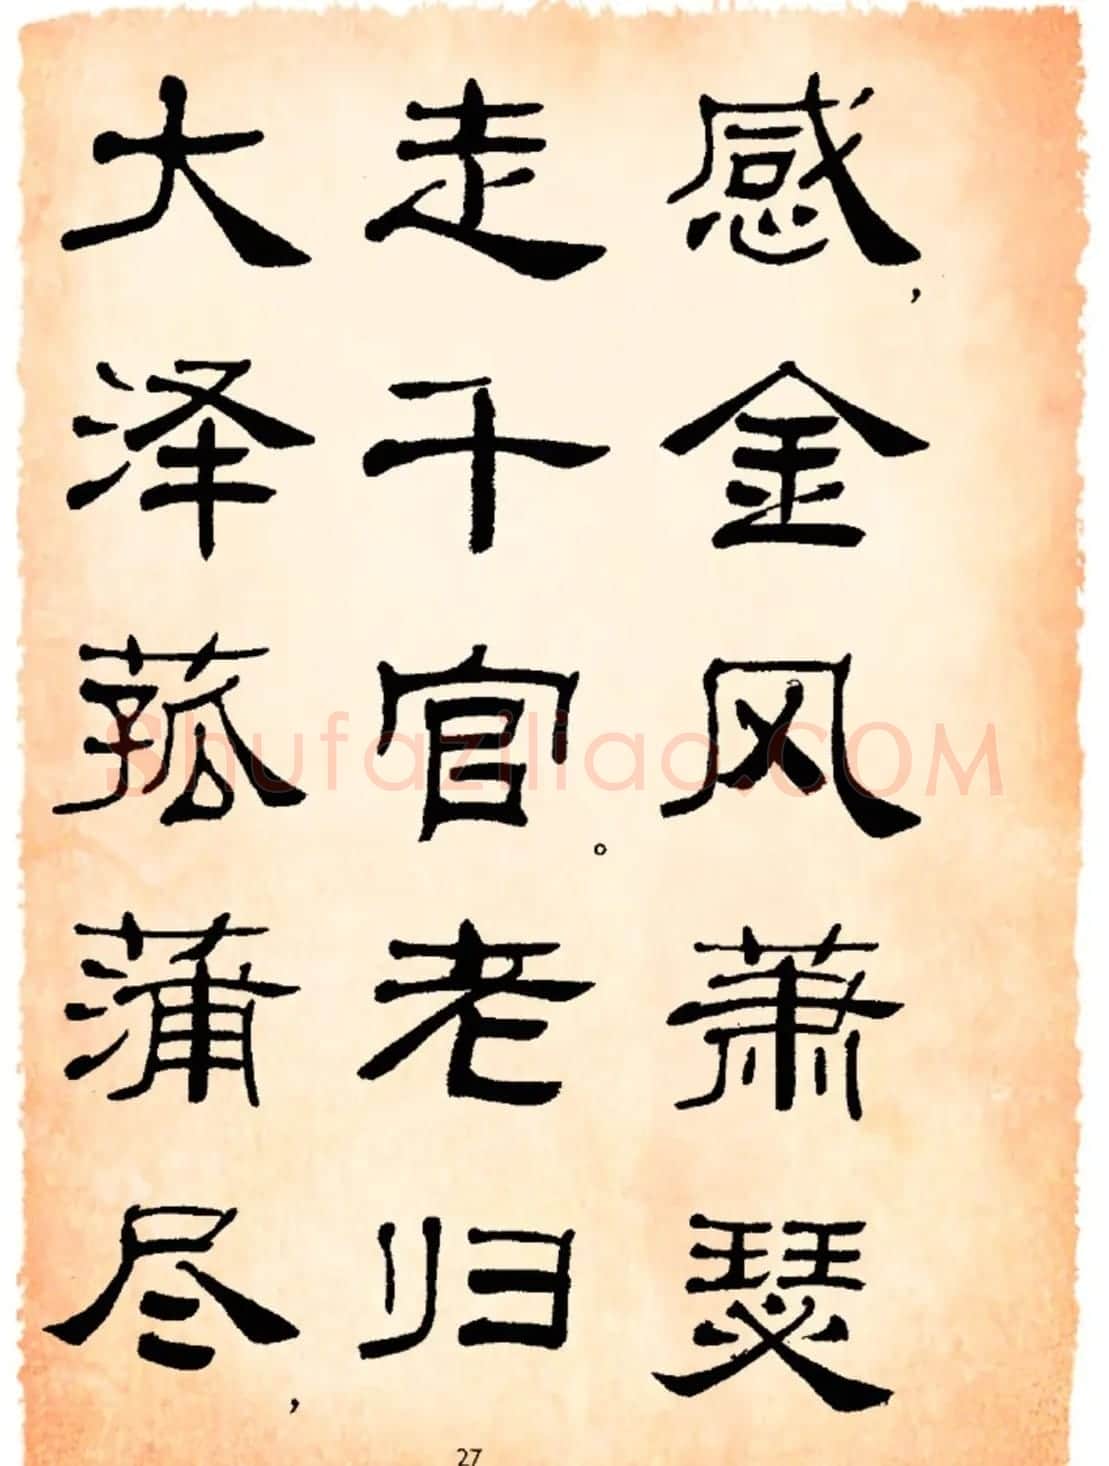 感,金风萧瑟
走千官。老归
大泽菰蒲尽,
27
Shufaziliao.COM